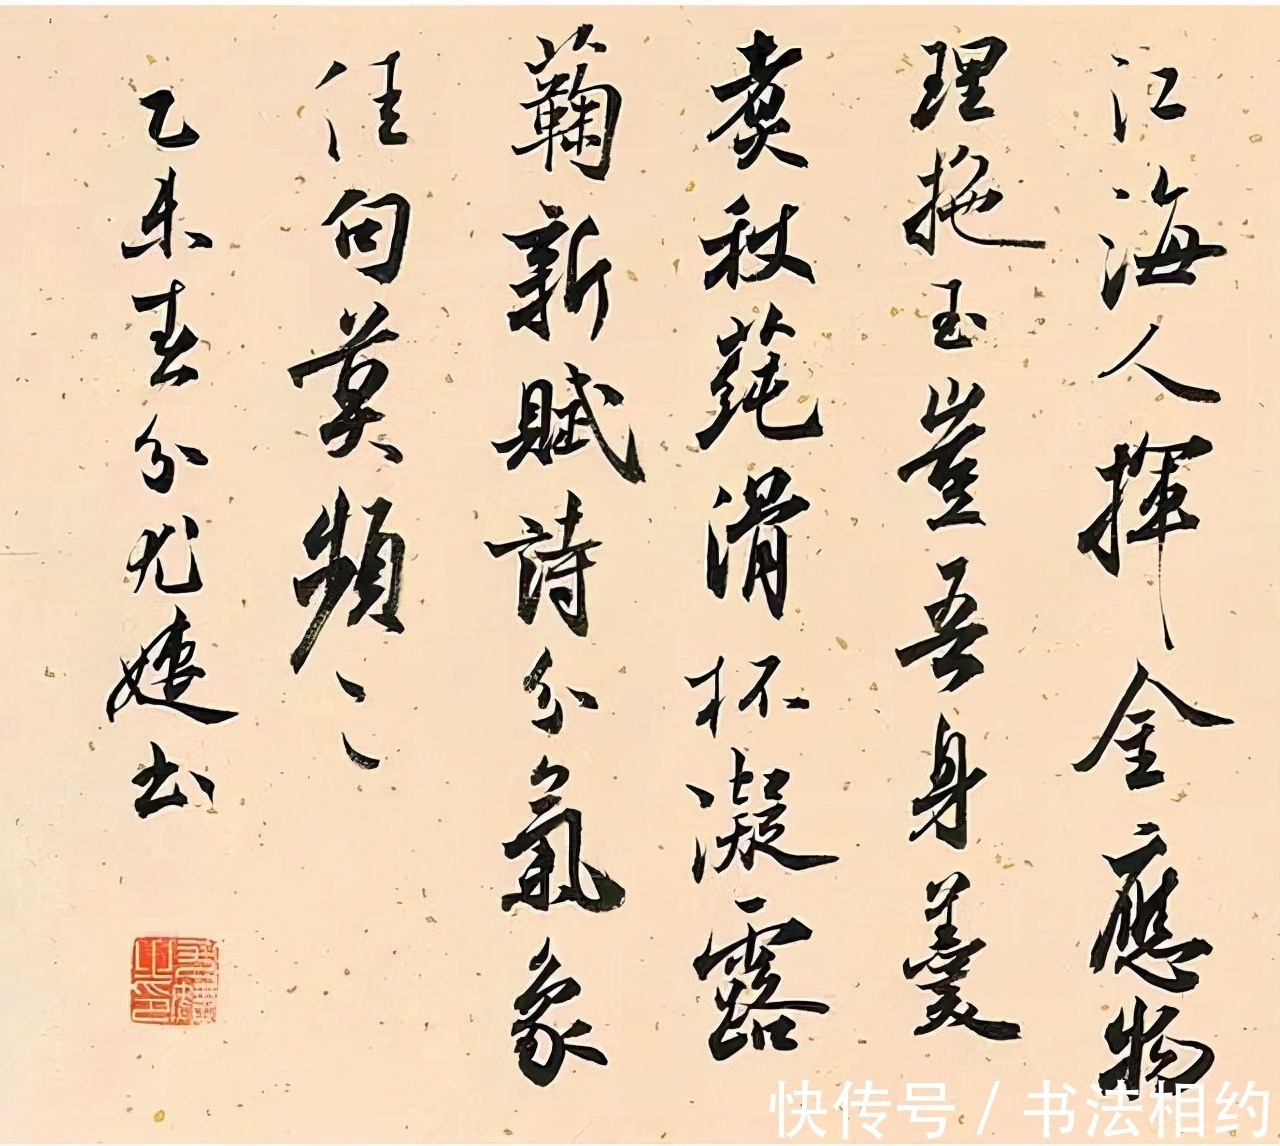 江海人揮金應物
理拖玉豈吾身羹
煮秋蒓滑杯凝露
蘜新賦詩分氣象
佳句莫頻〻
乙未春分尤婕书
快传号 / 书法相约